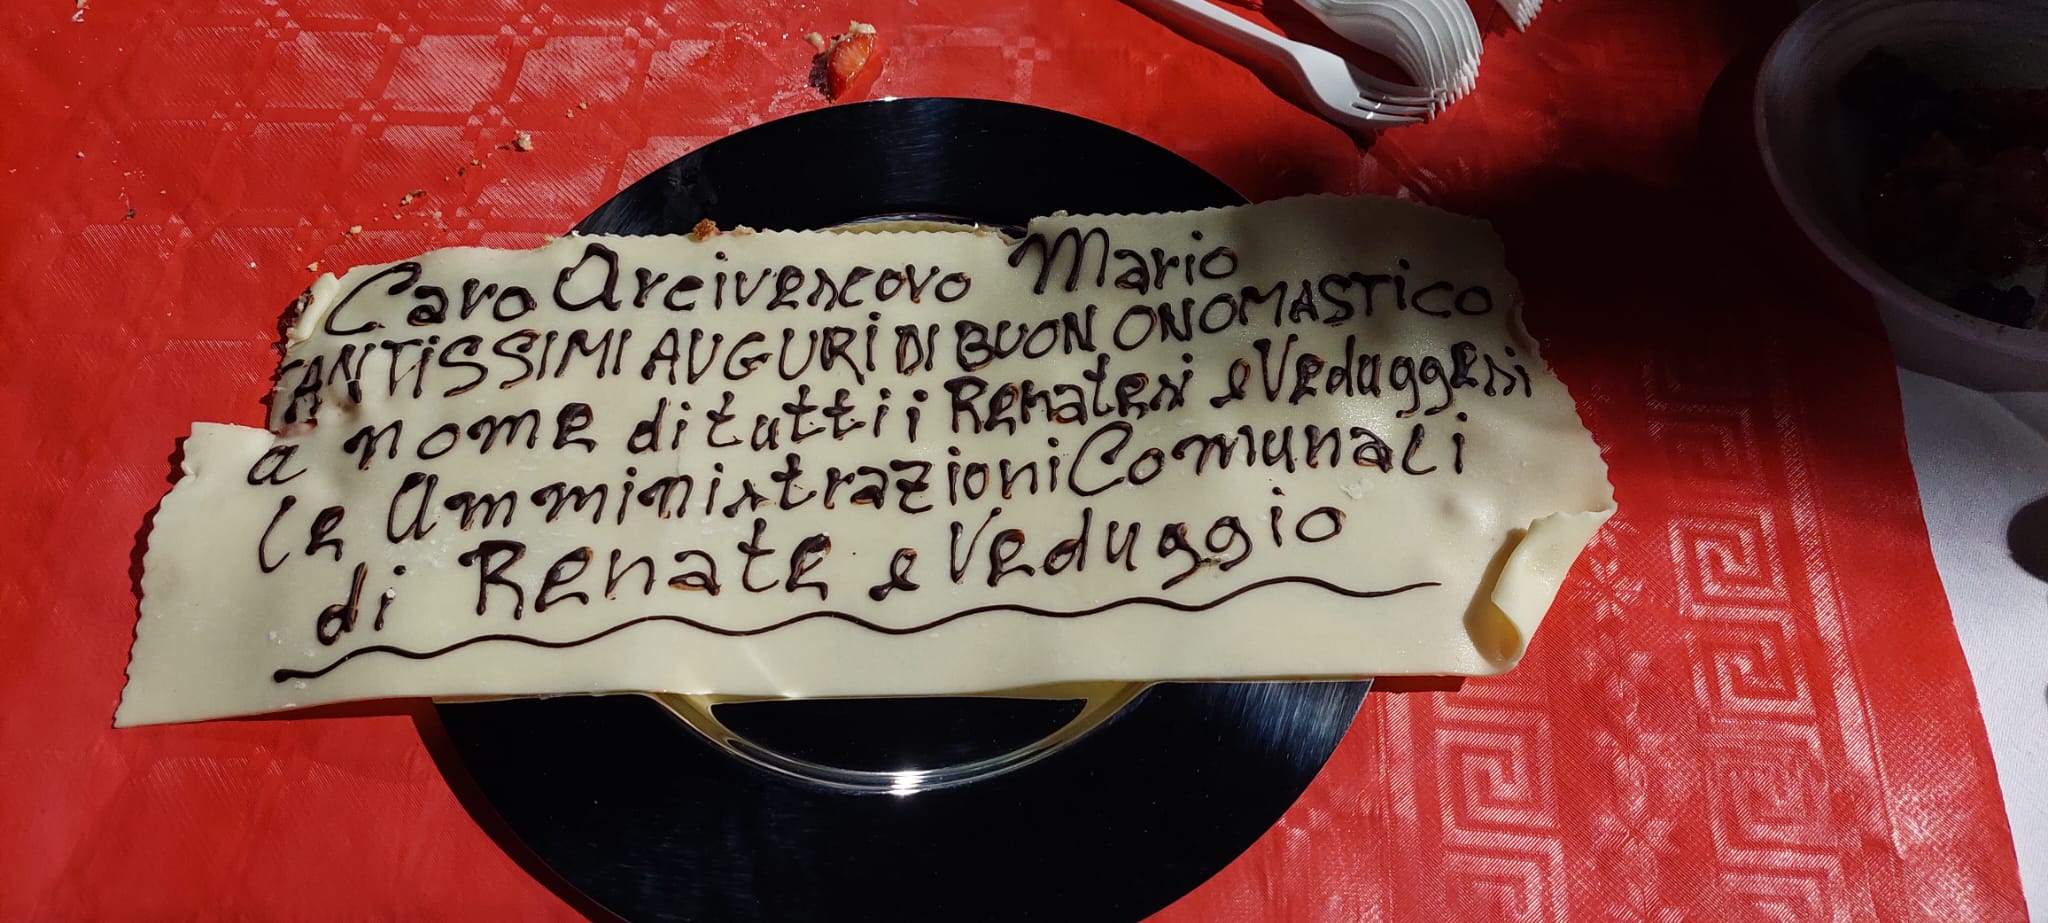 Caro Arcivescovo Mario
TANTiSSIMI AUGURi Di BUON ONOMASTiCO
a nome di tutti i Renatesi e Veduggesi
le Amministrazioni Comunali
di Renate e Veduggio